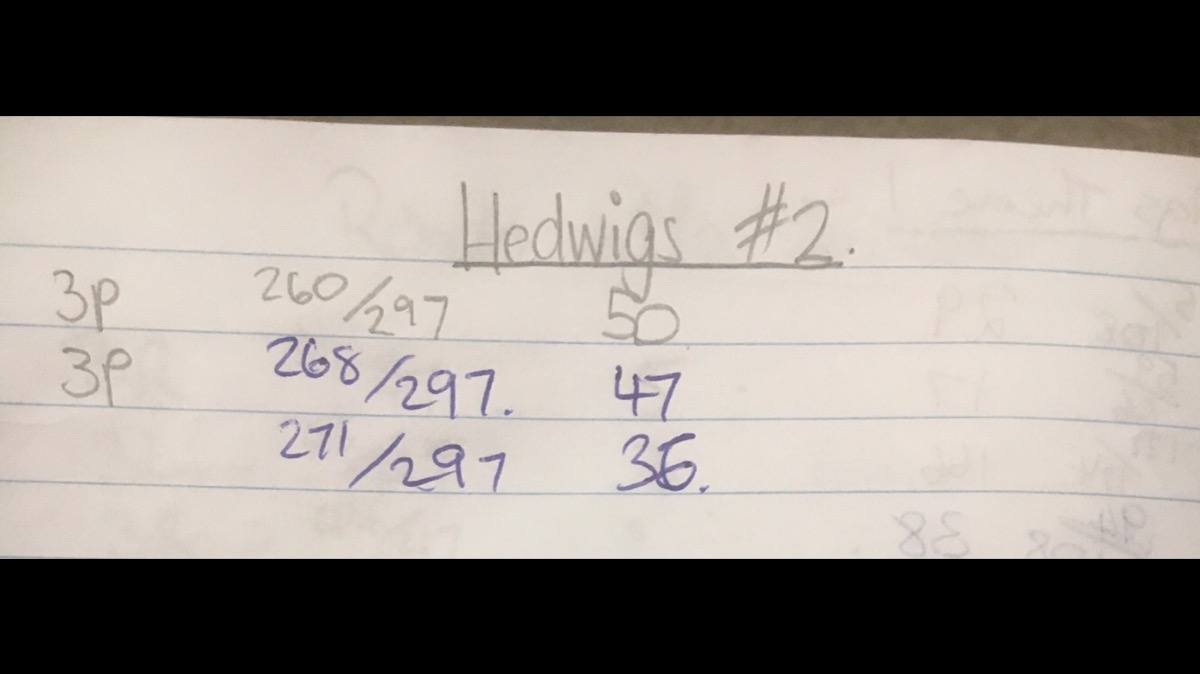 Hedwigs #2.
3p 260/297 50
3p 268/297. 47
271/297 36.